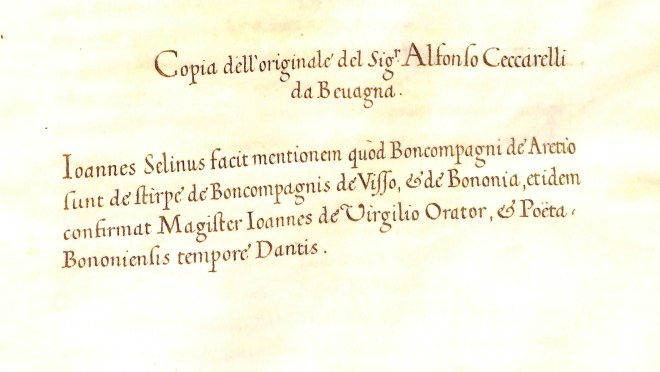 Copia dell'originale del Sigr Alfonso Ceccarelli
da Beuagna.
Ioannes Selinus facit mentionem quòd Boncompagni de Aretio
ſunt de ſtirpe de Boncompagnis de Viſſo, & de Bononia, et idem
confirmat Magiſter Ioannes de Virgilio Orator, & Poëta,
Bononienſis tempore Dantis.